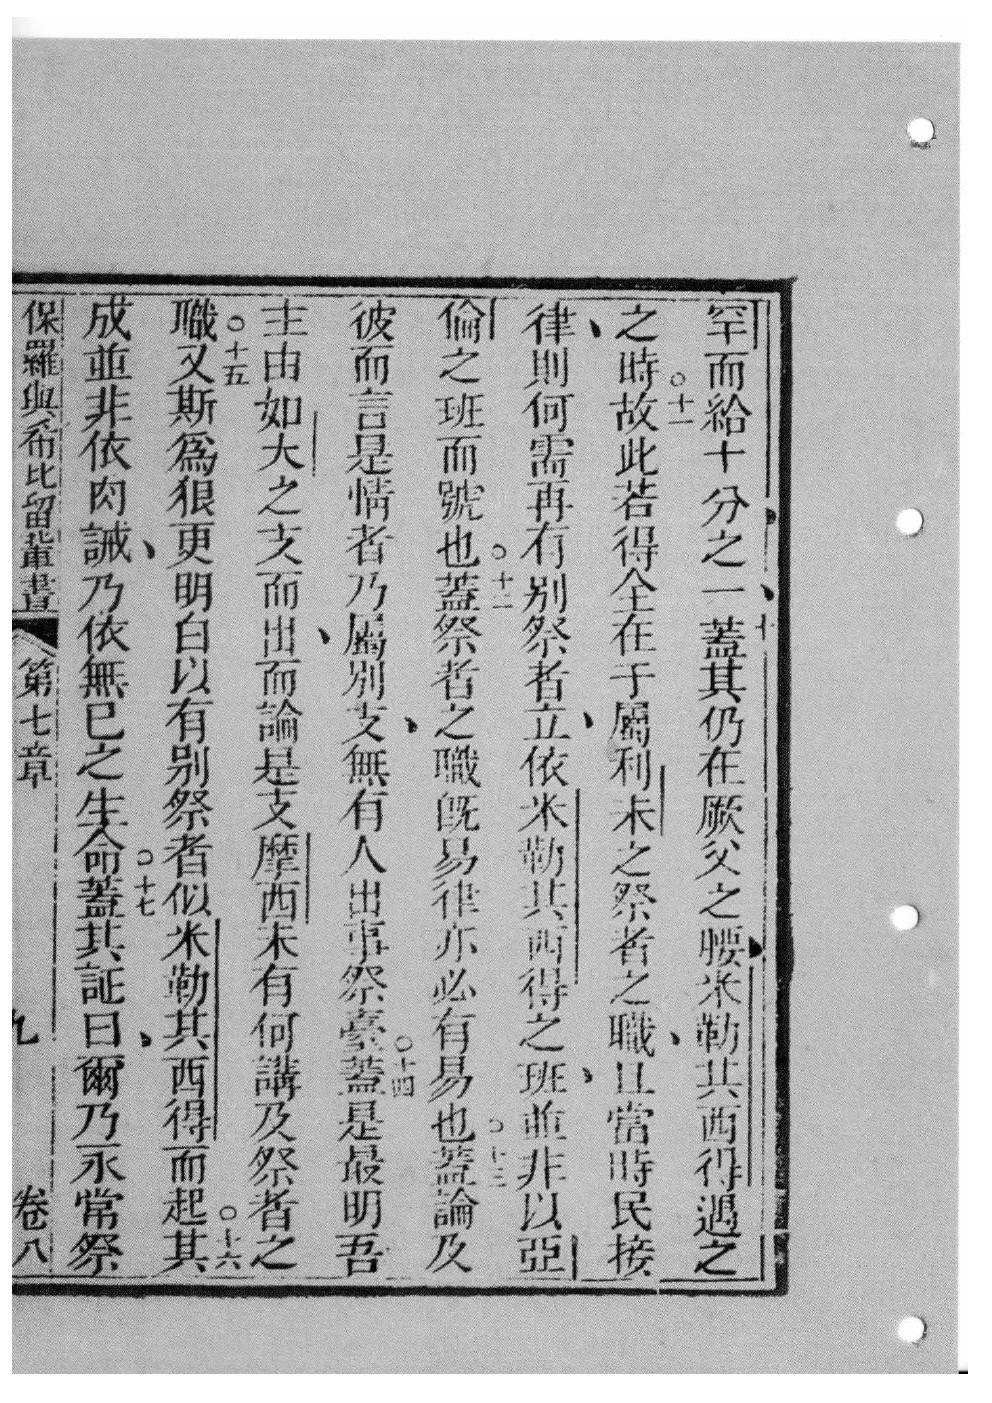 罕而給十分之一蓋其仍在厥父之腰米勒其西得過之
十
之時故此若得全在于屬利未之祭者之職且當時民接
○十一
律則何需再有別祭者立依米勒其西得之班並非以亞
倫之班而號也蓋祭者之職既易律亦必有易也蓋論及
○十二
○十三
彼而言是情者乃屬別支無有人出事祭臺蓋是最明吾
○十四
主由如大之支而出而論是支摩西未有何講及祭者之
職又斯為狠更明白以有別祭者似米勒其西得而起其
○十五
○十六
成並非依肉誡乃依無已之生命蓋其証曰爾乃永常祭
○十七
保羅與希比留輩書 第七章 九 卷八